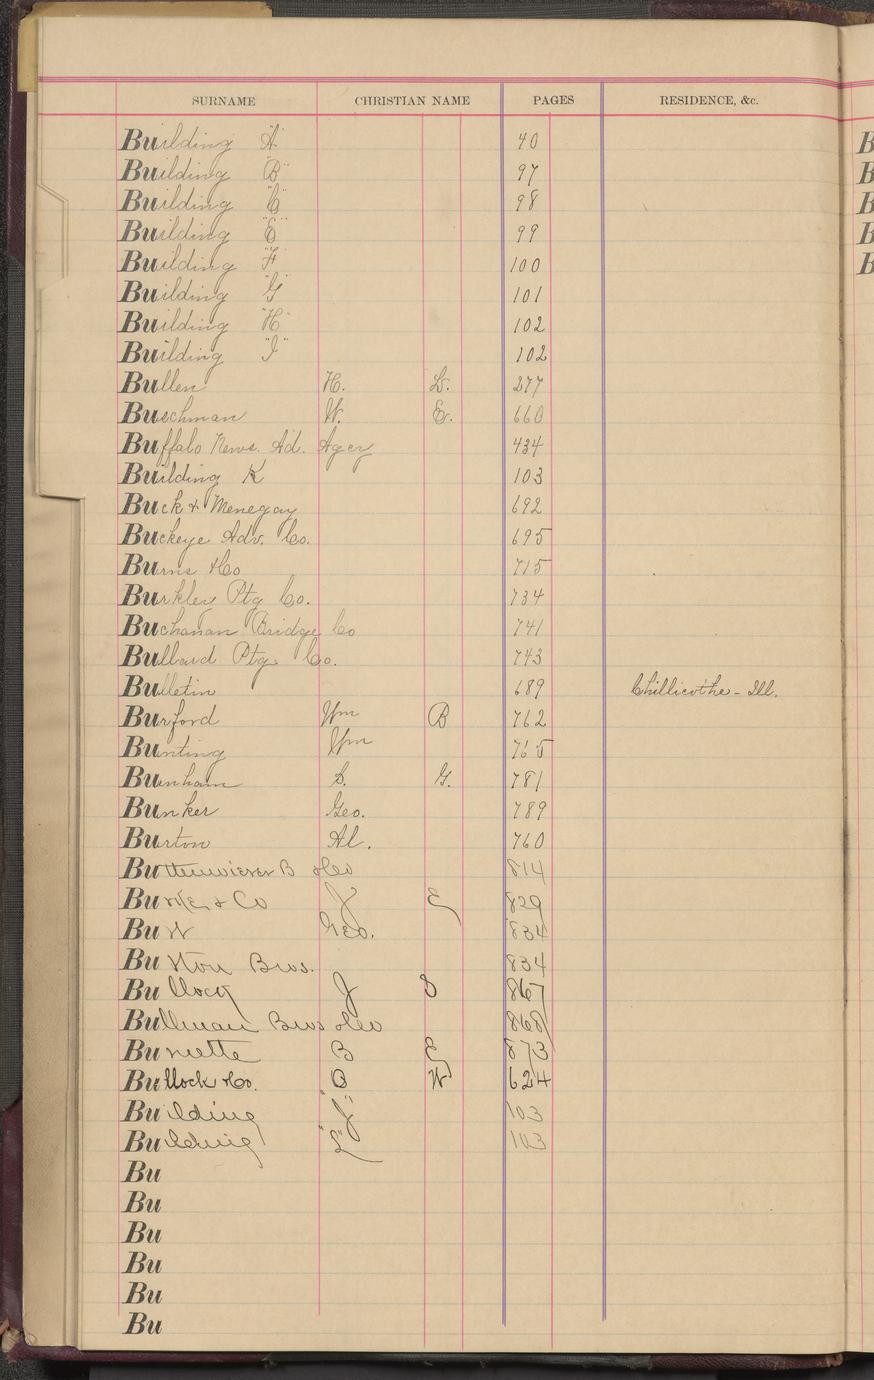 SURNAME CHRISTIAN NAME PAGES RESIDENCE, &c.
Building "A" 40
Building "B" 97
Building "C" 98
Building "E" 99
Building "F" 100
Building "G" 101
Building "H" 102
Building "I" 102
Bullen H. L. 277
Buschman W. E. 660
Buffalo News. Ad. Agcy 434
Building K 103
Buck & Menegay 692
Buckeye Adv. Co. 695
Burns & Co 715
Burkley Ptg Co. 734
Buchanan Bridge Co 741
Bullard Ptg. Co. 743
Bulletin 689 Chillicothe - Ill.
Burford Wm B 762
Bunting Wm 765
Burnham S. G. 781
Bunker Geo. 789
Burton Al. 760
Buttenwieser B & Co 814
Burke & Co J E 829
Bu Geo. 834
Bu Bros. 834
Bullock J S 867
Bullman Bros & Co 868
Burnette B E 873
Bullock & Co. O W 624
Building "J" 103
Building "L" 103
Bu
Bu
Bu
Bu
Bu
Bu